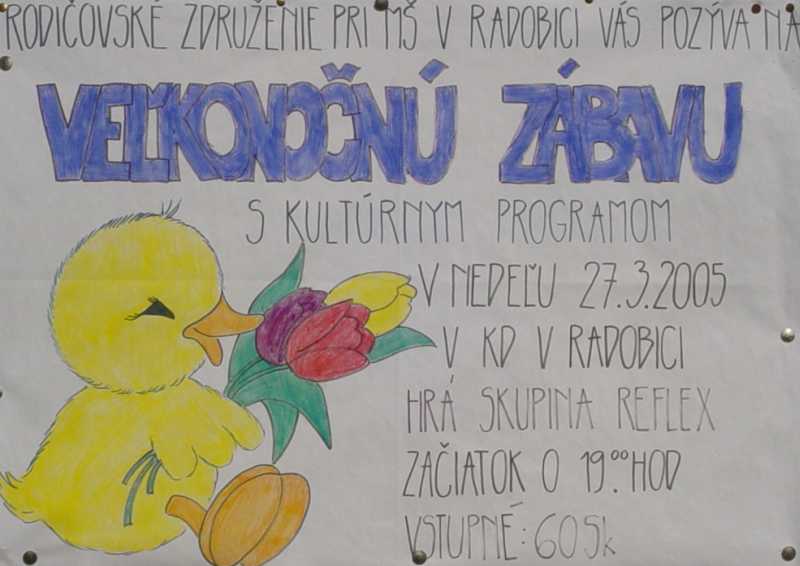 RODIČOVSKÉ ZDRUŽENIE PRI MŠ V RADOBICI VÁS POZÝVA NA
VEĽKONOČNÚ ZÁBAVU
S KULTÚRNYM PROGRAMOM
V NEDEĽU 27.3.2005
V KD V RADOBICI
HRÁ SKUPINA REFLEX
ZAČIATOK O 19.⁰⁰ HOD
VSTUPNÉ: 60 Sk